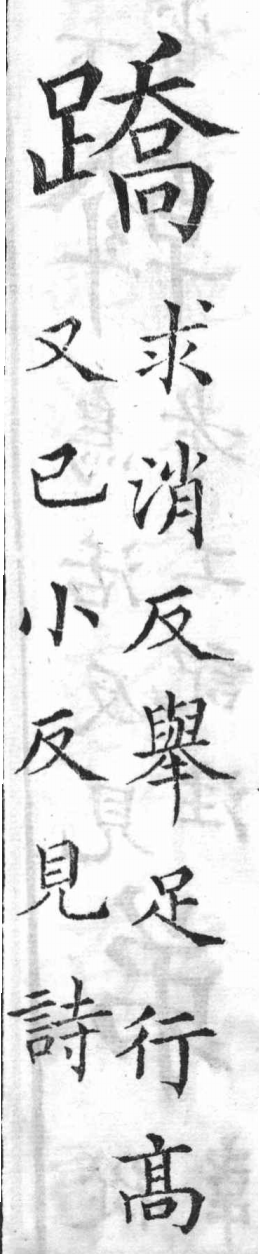 蹻
求消反舉足行髙
又已小反見詩